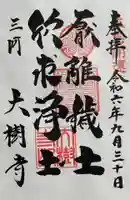 奉拝 令和六年九月三十日
厭離穢土
欣求浄土
三河 大樹寺